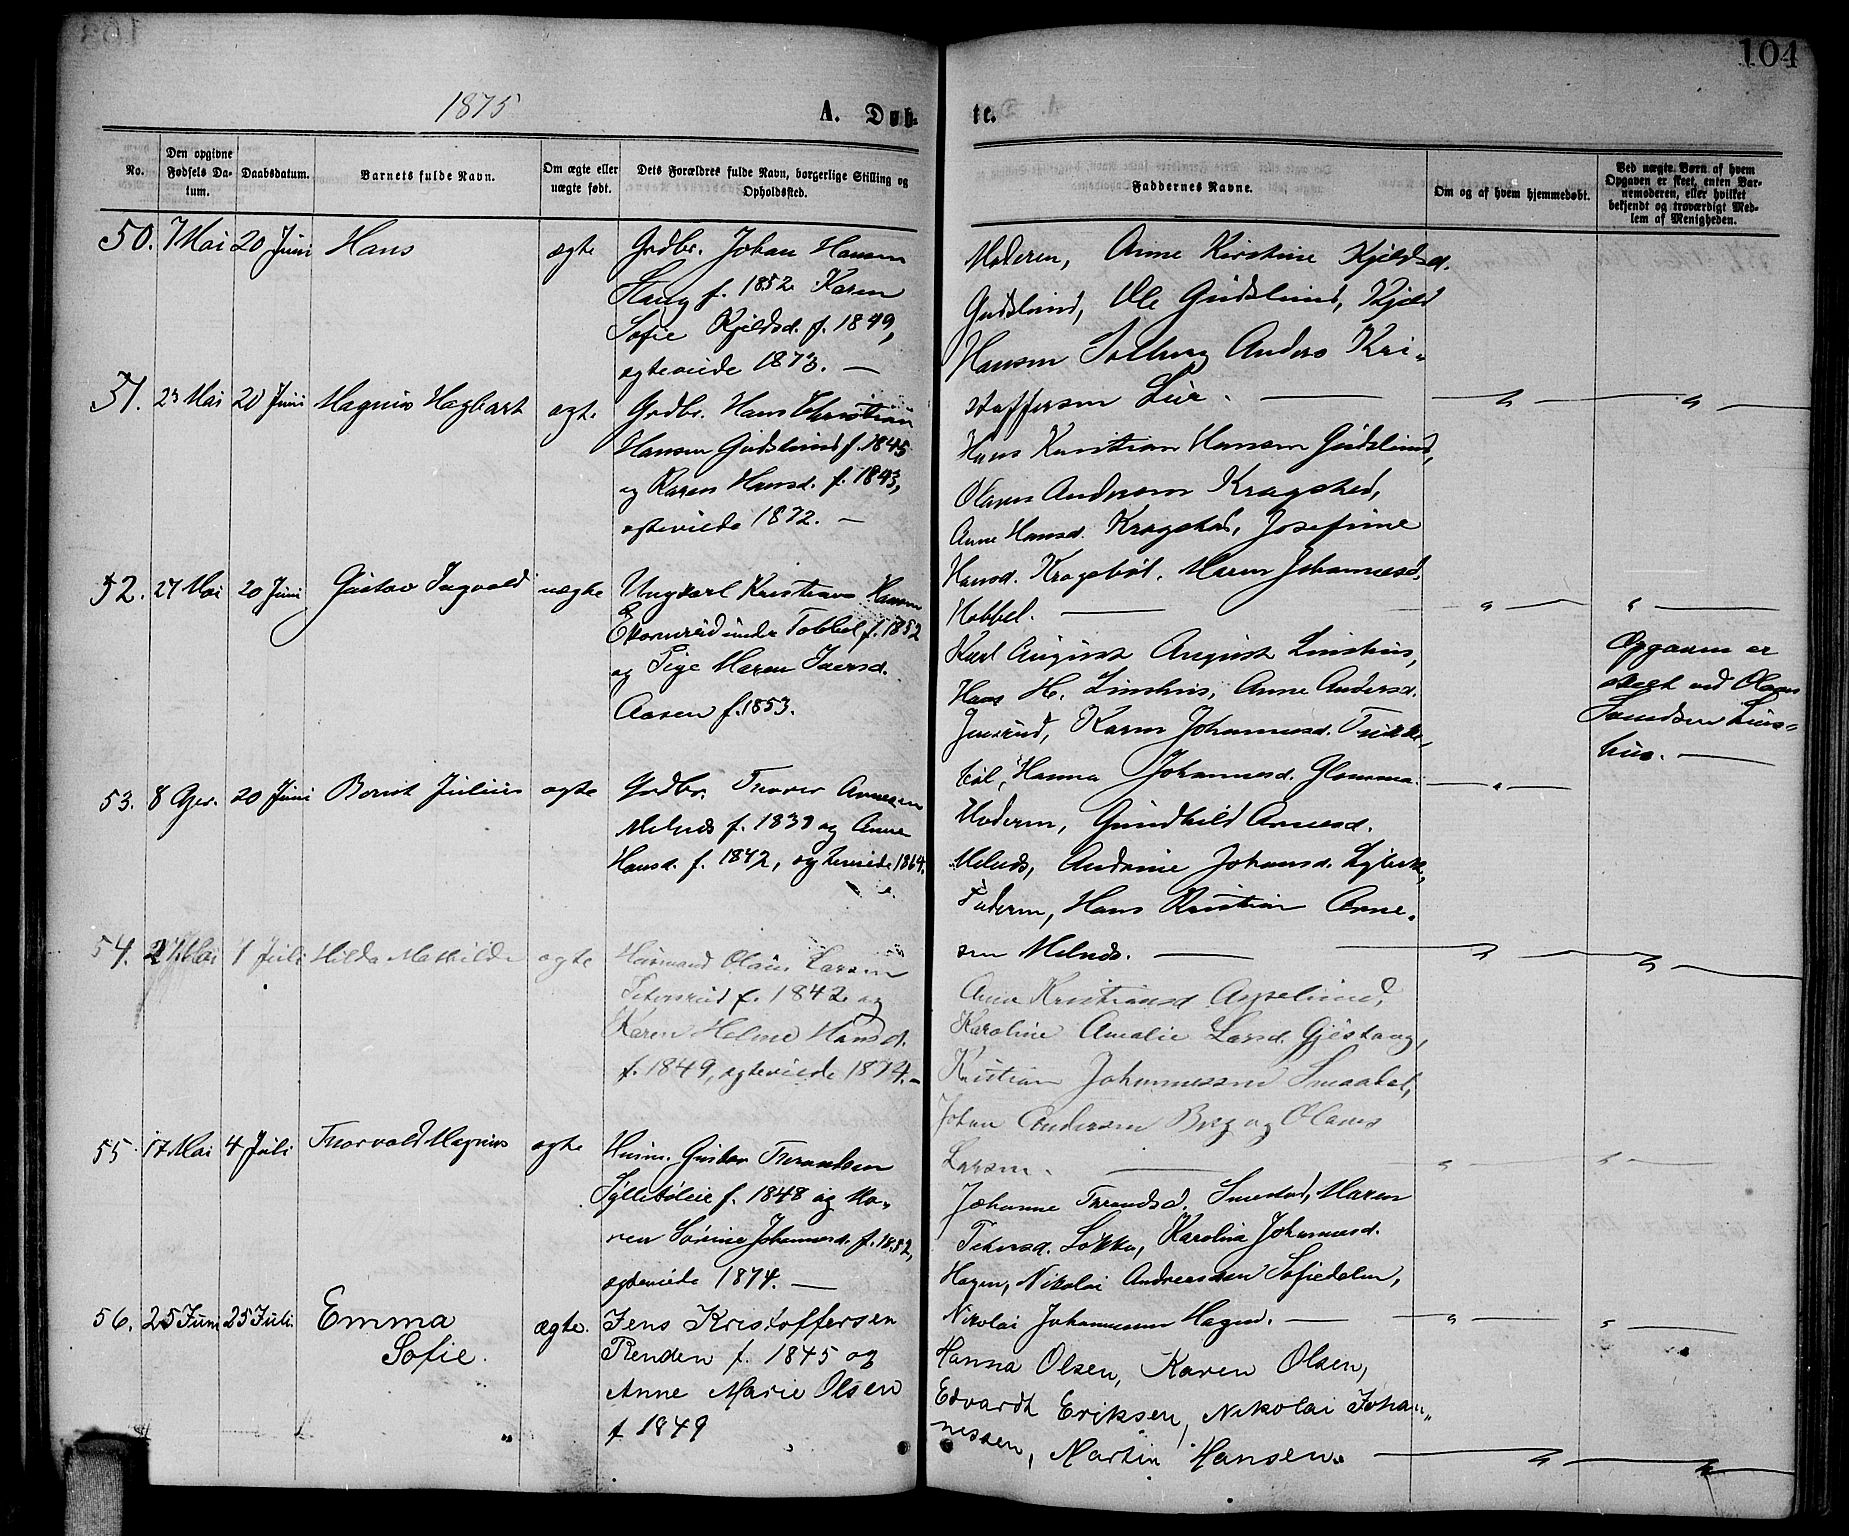 104
1875
A. Døb-
te.
No.
Den opgivne
Fødsels Da-
tum.
Daabsdatum.
Barnets fulde Navn.
Om ægte eller
uægte født.
Dets Forældres fulde Navn, borgerlige Stilling og
Opholdssted.
Faddernes Navne.
Om og af hvem hjemmedøbt.
Ved uægte Børn af hvem
Opgaven er skeet, enten Bar-
nemoderen, eller hvilket
bekjendt og troværdigt Med-
lem af Menigheden.
50. 7 Mai 20 Juni Hans ægte
Grdbr. Johan Hansen
Haug f. 1852 Karen
Sofie Kjeldsd. f. 1849,
ægteviede 1873. —
Moderen, Anne Kirstine Kjeldsd.
Gudslund, Ole Gudslund, Kjeld
Hansen Solberg Anders Kri-
stoffersen Lie. —
51. 23 Mai 20 Juni Magnus Hagbart ægte
Grdbr. Hans Christian
Hansen Gudslund f. 1845
og Karen Hansd. f. 1843,
ægteviede 1872. —
Hans Kristian Hansen Gudslund,
Olaves Andersen Kragsted,
Anne Hansd. Kragstad, Josefine
Hansd. Kragsbøl. Maren Johannesd.
Habbel. —
52. 27 Mai 20 Juni Gustav Ingvald uægte
Ungkarl Kristian Hansen
Ekornrud under Tobbel f. 1852
og Pige Maren Iversd.
Aasen f. 1853.
Karl August August Linshus,
Hans H. Linshus, Anne Andersd.
Jensrud, Karen Johannesd. Trikke-
bøl, Hanna Johannesd. Glomma.
Opgaven er
skeet ved Olaus
Linds-
hus. —
53. 8 Apr. 20 Juni Bernt Julius ægte
Grdbr. Thorer Arnesen
Melnæs f. 1839 og Anne
Hansd. f. 1842, ægteviede 1864.
Moderen, Gundhild Arnesd.
Melnæs, Andrine Johansd.
Faderen, Hans Kristian Arne-
sen Melnæs. —
54. 27 Mai 4 Juli Hilda Mathilde ægte
Husmand Olaus Larsen
Petersrud f. 1842 og
Karen Helene Hansd.
f. 1849, ægteviede 1874. —
Anne Kristiansd. Aspelund,
Karoline Amalie Larsd. Gjestaug,
Kristian Johannessen Smaabøl,
Johan Andersen Berg og Olaves
Larsen. —
55. 17 Mai 4 Juli Thorvald Magnus ægte
Husm. Gustav Throndsen
Syllebøleie f. 1848 og Ma-
ren Sørine Johannesd. f. 1852,
ægteviede 1874. —
Johanne Throndsd. Smestad, Maren
Petersd. Løkka, Karolina Johannesd.
Hagen, Nikolai Andreassen Sofiedalen,
Nikolai Johannesen Hagen. —
56. 25 Juni 25 Juli. Emma ægte.
Sofie.
Jens Kristoffersen
Renden f. 1845 og
Anne Marie Olsen
f 1849
Hanna Olsen, Karen Olsen,
Edvardt Eriksen, Nikolai Johan-
nessen, Martin Hansen.